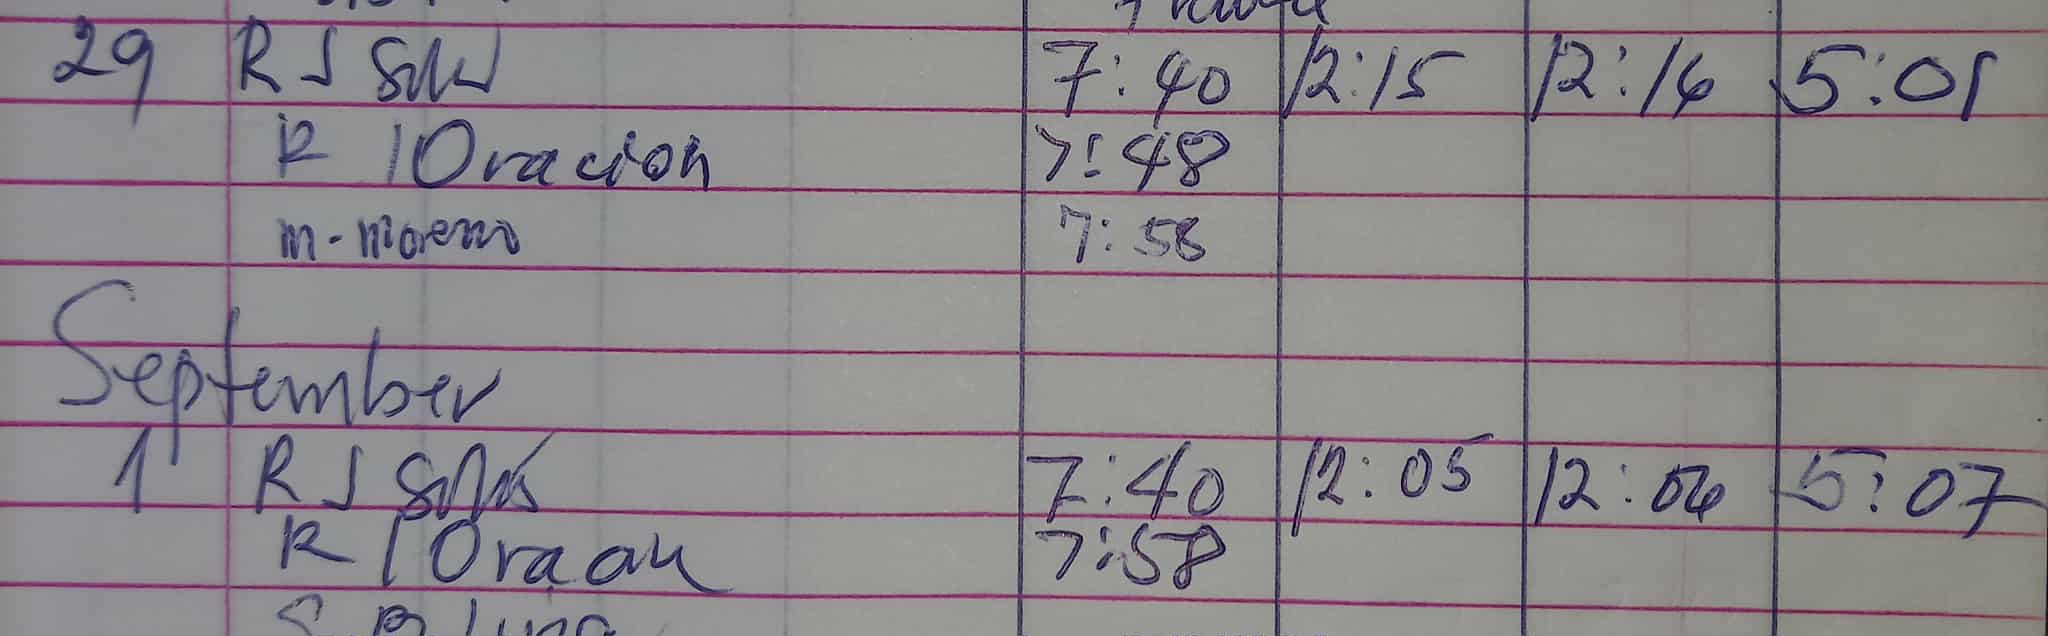 29 R J Solis 7:40 12:15 12:16 5:01
R / Oracion 7:48
m-moreno 7:58
September
1 R J Solis 7:40 12:05 12:06 5:07
R / Oracion 7:58